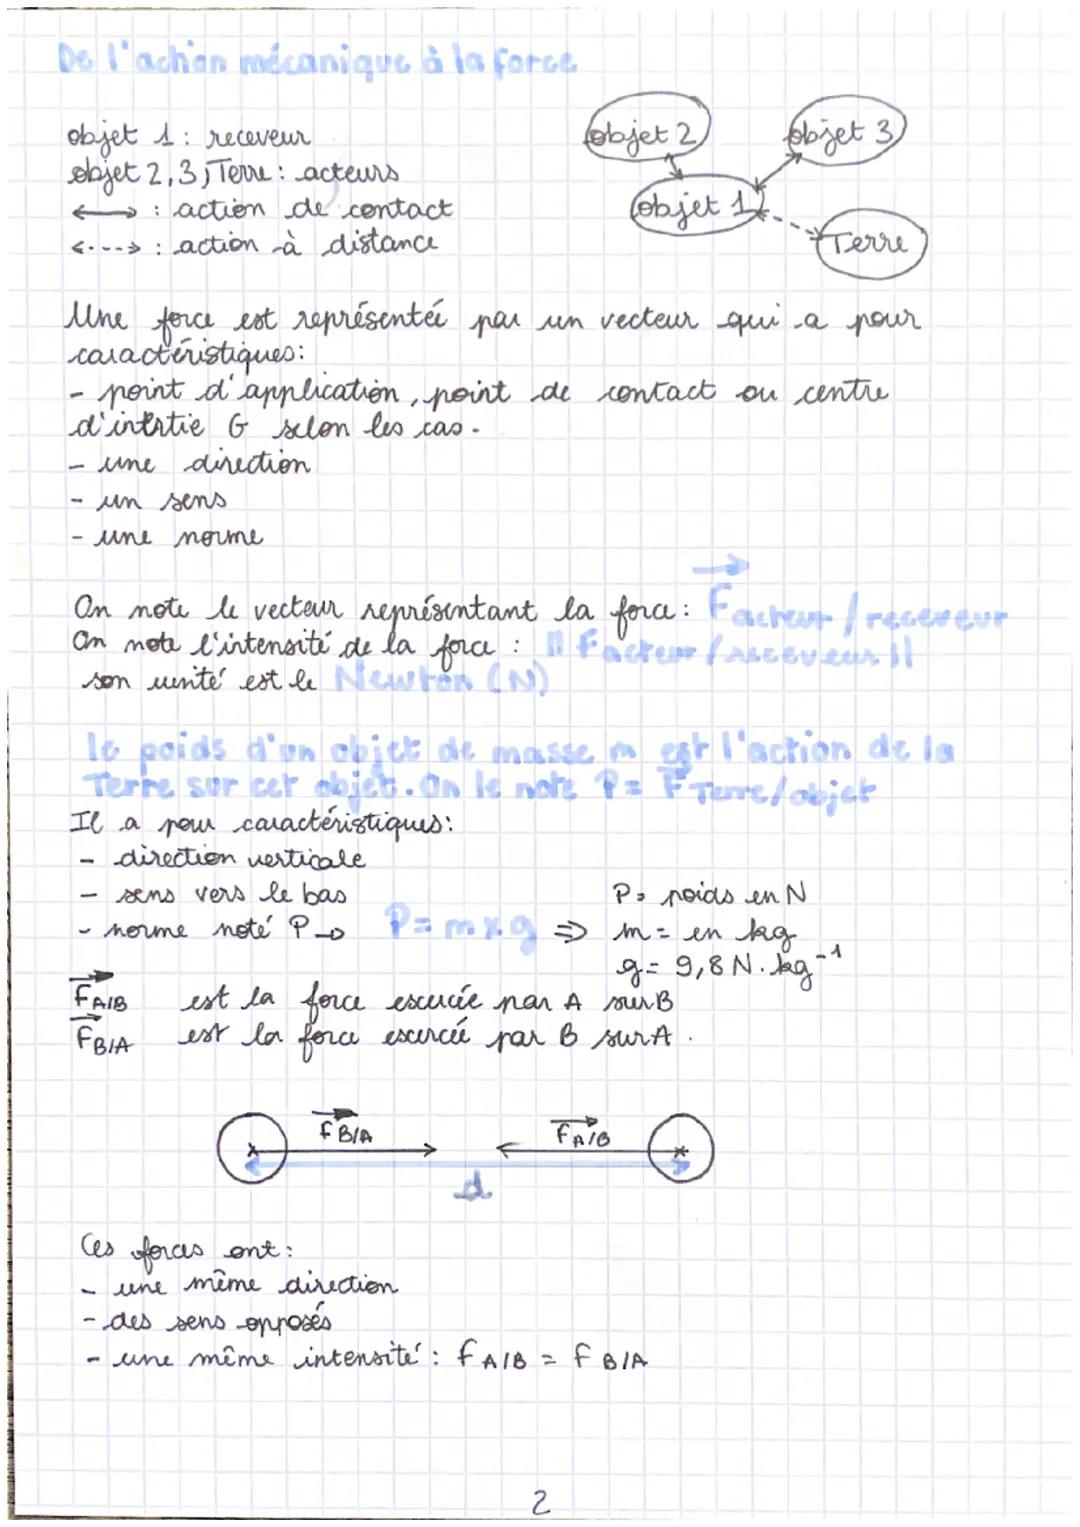 De l'action mécanique à la force
objet 1 : receveur
objet 2, 3, Terre : acteurs
⟷ : action de contact
<---> : action à distance
objet 2
objet 3
objet 1
Terre
Une force est représentée par un vecteur qui a pour
caractéristiques:
- point d'application, point de contact ou centre
d'intertie G selon les cas.
- une direction
- un sens
- une norme
On note le vecteur représentant la force : F acteur / receveur
On note l'intensité de la force : || F acteur / receveur ||
son unité est le Newton (N)
le poids d'un objet de masse m est l'action de la
Terre sur cet objet. On le note P = F Terre/objet
Il a pour caractéristiques:
- direction verticale
- sens vers le bas
- norme noté P → P = m x g ⇒
P = poids en N
m = en kg
g = 9,8 N.kg⁻¹
F A/B est la force exercée par A sur B
F B/A est la force exercée par B sur A.
F B/A
F A/B
d
Ces forces ont :
- une même direction
- des sens opposés
- une même intensité : F A/B = F B/A
2